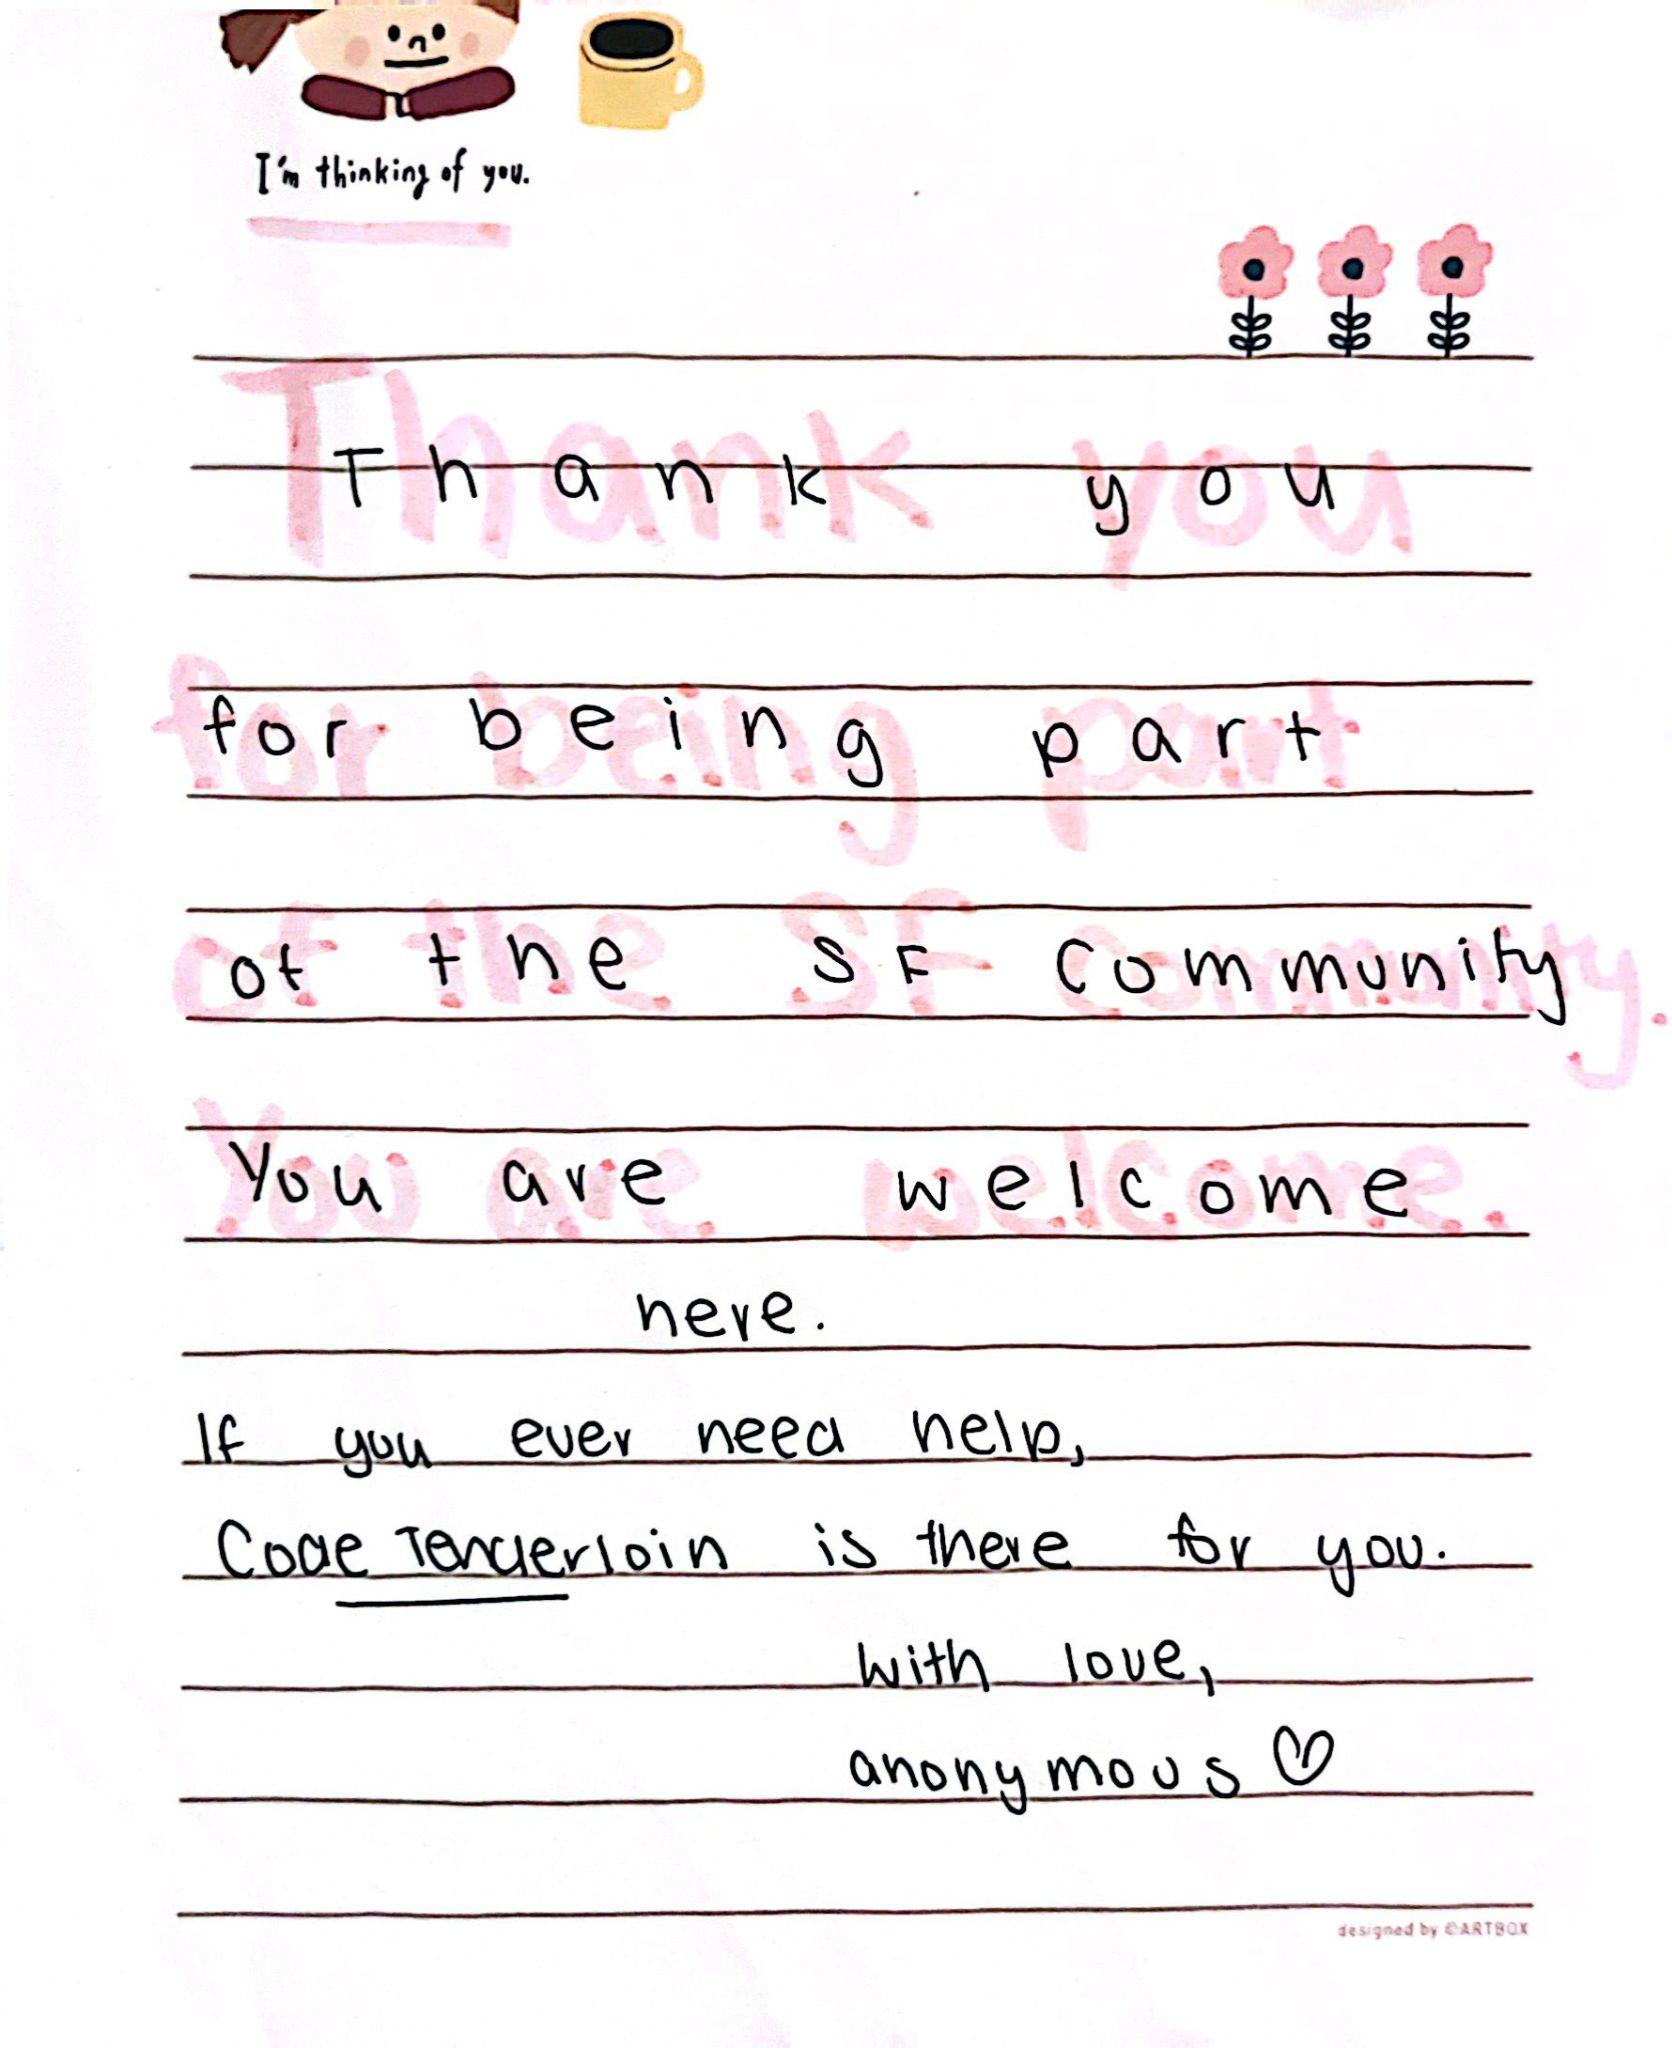 I'm thinking of you.
Thank you
for being part
of the SF community
You are welcome.
here.
If you ever need help,
Code Tenderloin is there for you.
with love,
anonymous ♡
designed by ©ARTBOX